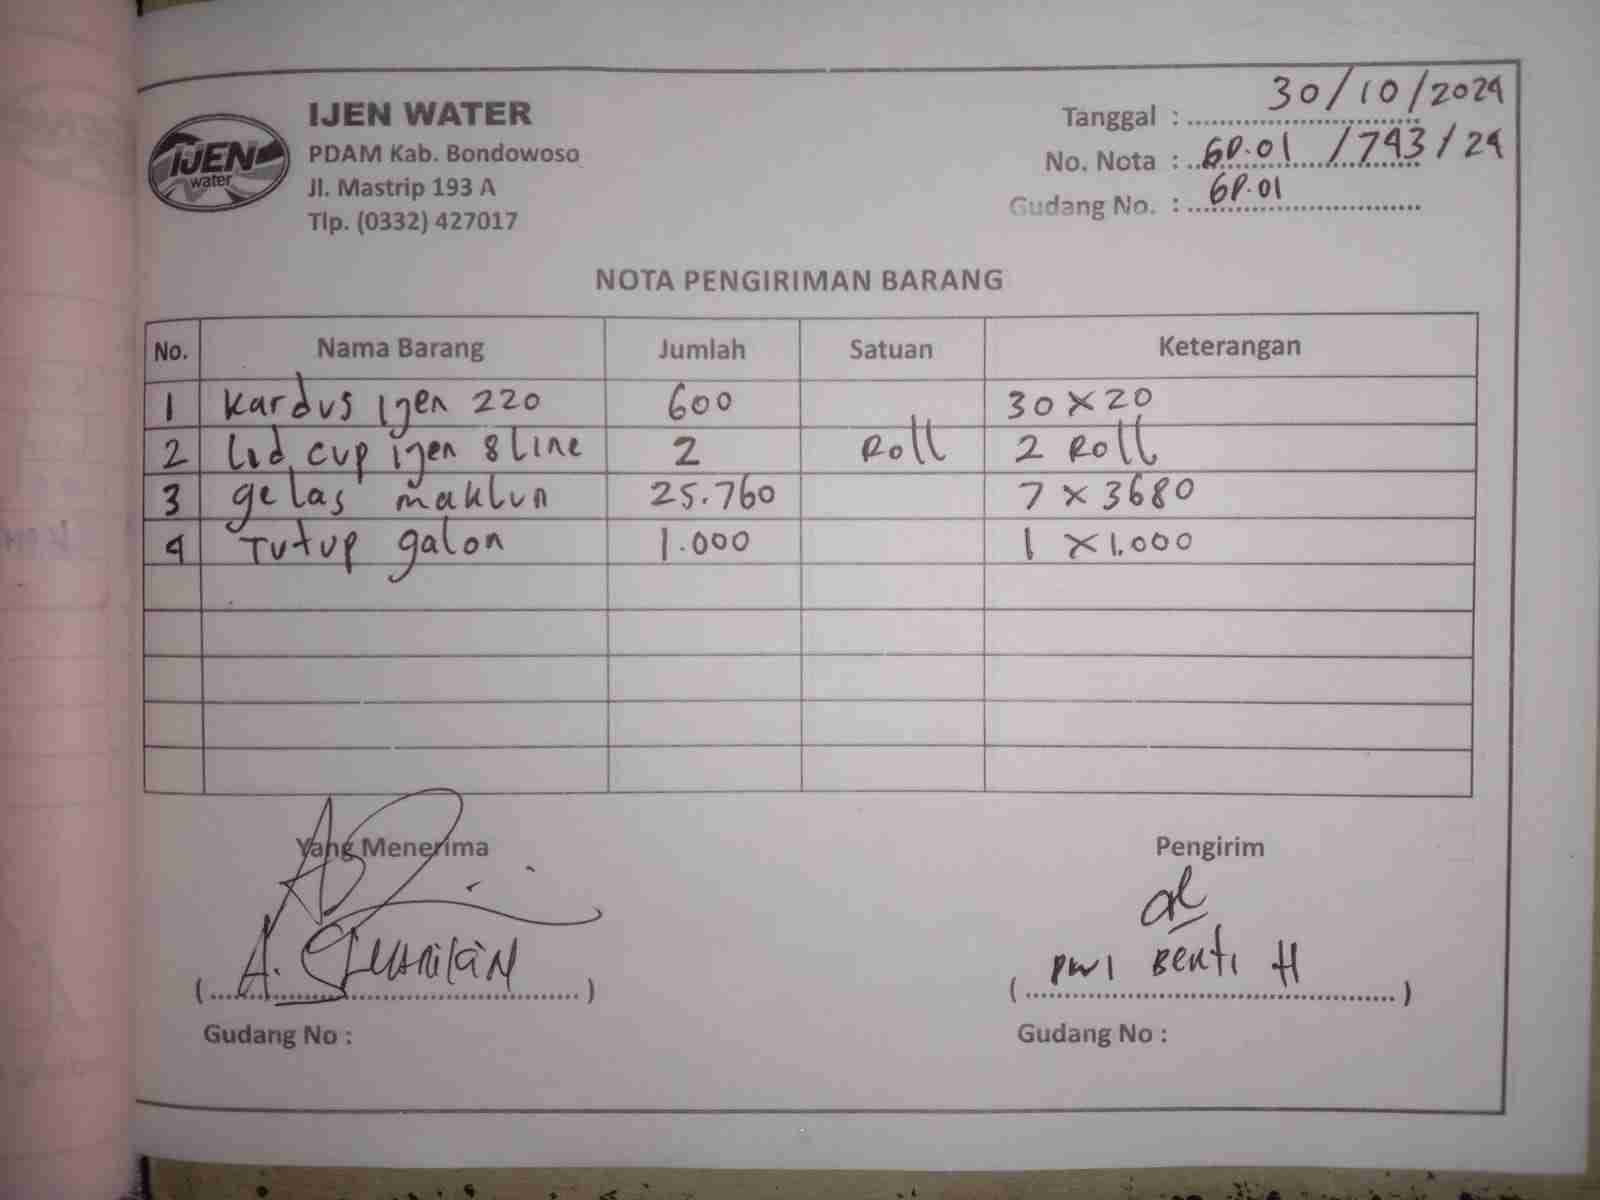 IJEN WATER
PDAM Kab. Bondowoso
Jl. Mastrip 193 A
Tlp. (0332) 427017
IJEN
water
Tanggal : 30/10/2024
No. Nota : GP.01 /743/24
Gudang No. : GP.01
NOTA PENGIRIMAN BARANG
No. Nama Barang Jumlah Satuan Keterangan
1 Kardus ijen 220 600 30 x 20
2 Lid cup ijen 8 line 2 Roll 2 Roll
3 gelas maklun 25.760 7 x 3680
4 Tutup galon 1.000 1 x 1.000
Yang Menerima Pengirim
( A. ) ( Dwi Bekti H )
Gudang No : Gudang No :